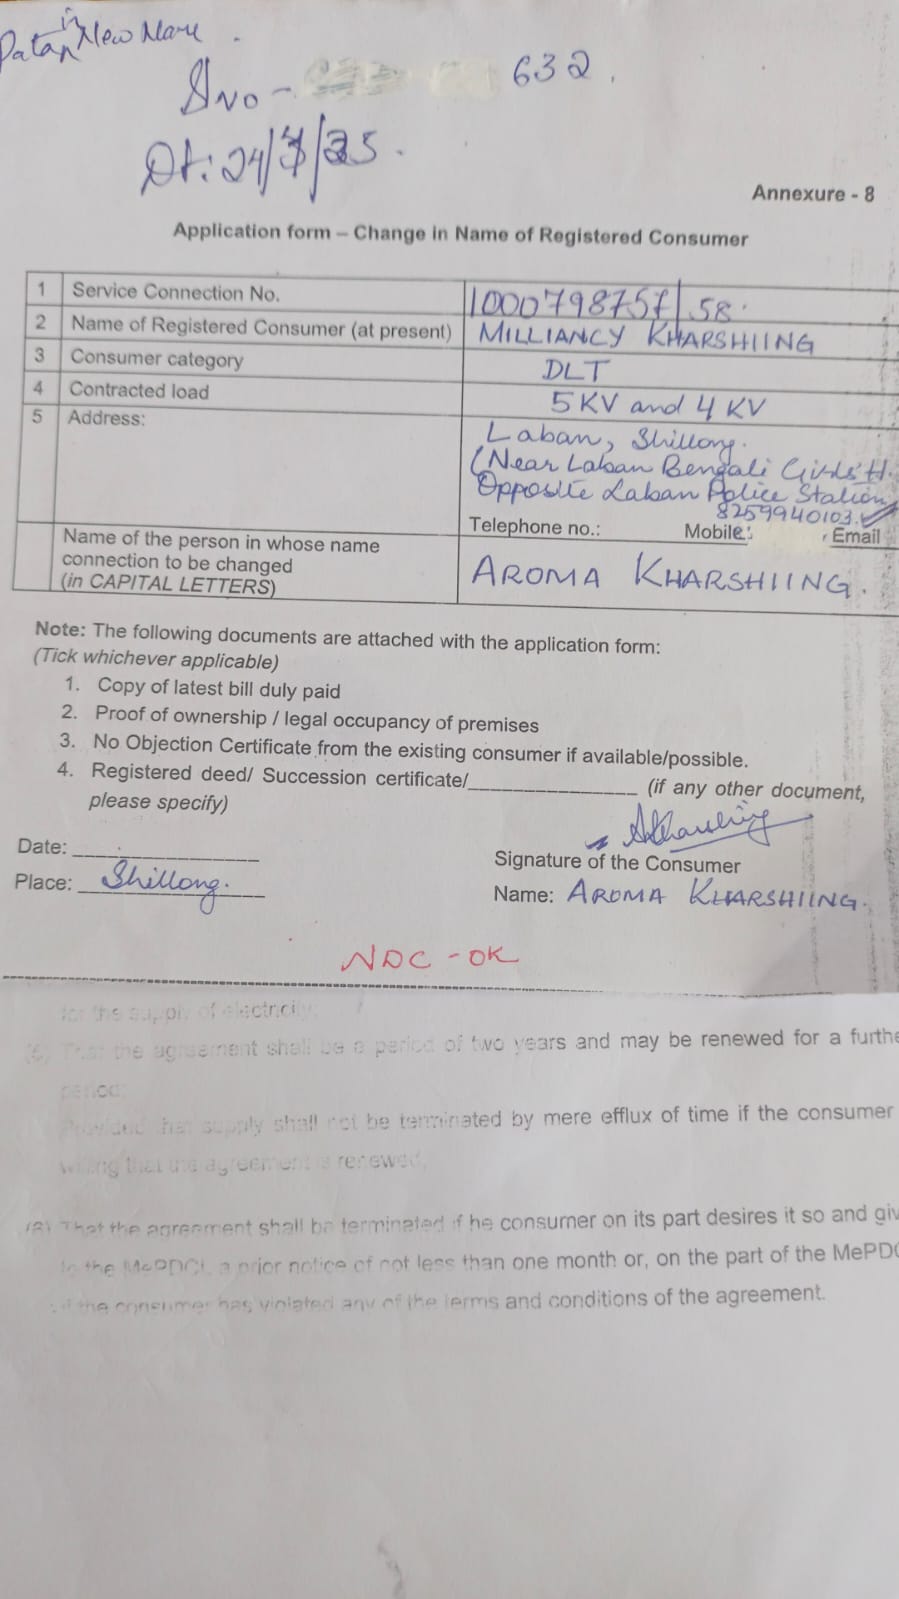 in
New Name
SNO - 632.
Dt: 24/7/25.
Annexure - 8
Application form – Change in Name of Registered Consumer
1 Service Connection No. 1000798757/58.
2 Name of Registered Consumer (at present) MILLIANCY KHARSHIING
3 Consumer category DLT
4 Contracted load 5 KV and 4 KV
5 Address: Laban, Shillong.
(Near Laban Bengali Girls' H.
Opposite Laban Police Station
8259940103.
Telephone no.: Mobile: , Email
Name of the person in whose name
connection to be changed
(in CAPITAL LETTERS) AROMA KHARSHIING.
Note: The following documents are attached with the application form:
(Tick whichever applicable)
1. Copy of latest bill duly paid
2. Proof of ownership / legal occupancy of premises
3. No Objection Certificate from the existing consumer if available/possible.
4. Registered deed/ Succession certificate/_______________ (if any other document,
please specify)
Date: _______________
Signature of the Consumer
Place: Shillong.
Name: AROMA KHARSHIING.
NDC - OK
for the supply of electricity.
That the agreement shall be a period of two years and may be renewed for a furthe
period.
Provided that supply shall not be terminated by mere efflux of time if the consumer
willing that the agreement is renewed.
That the agreement shall be terminated if he consumer on its part desires it so and giv
to the MePDCL a prior notice of not less than one month or, on the part of the MePDC
if the consumer has violated any of the terms and conditions of the agreement.